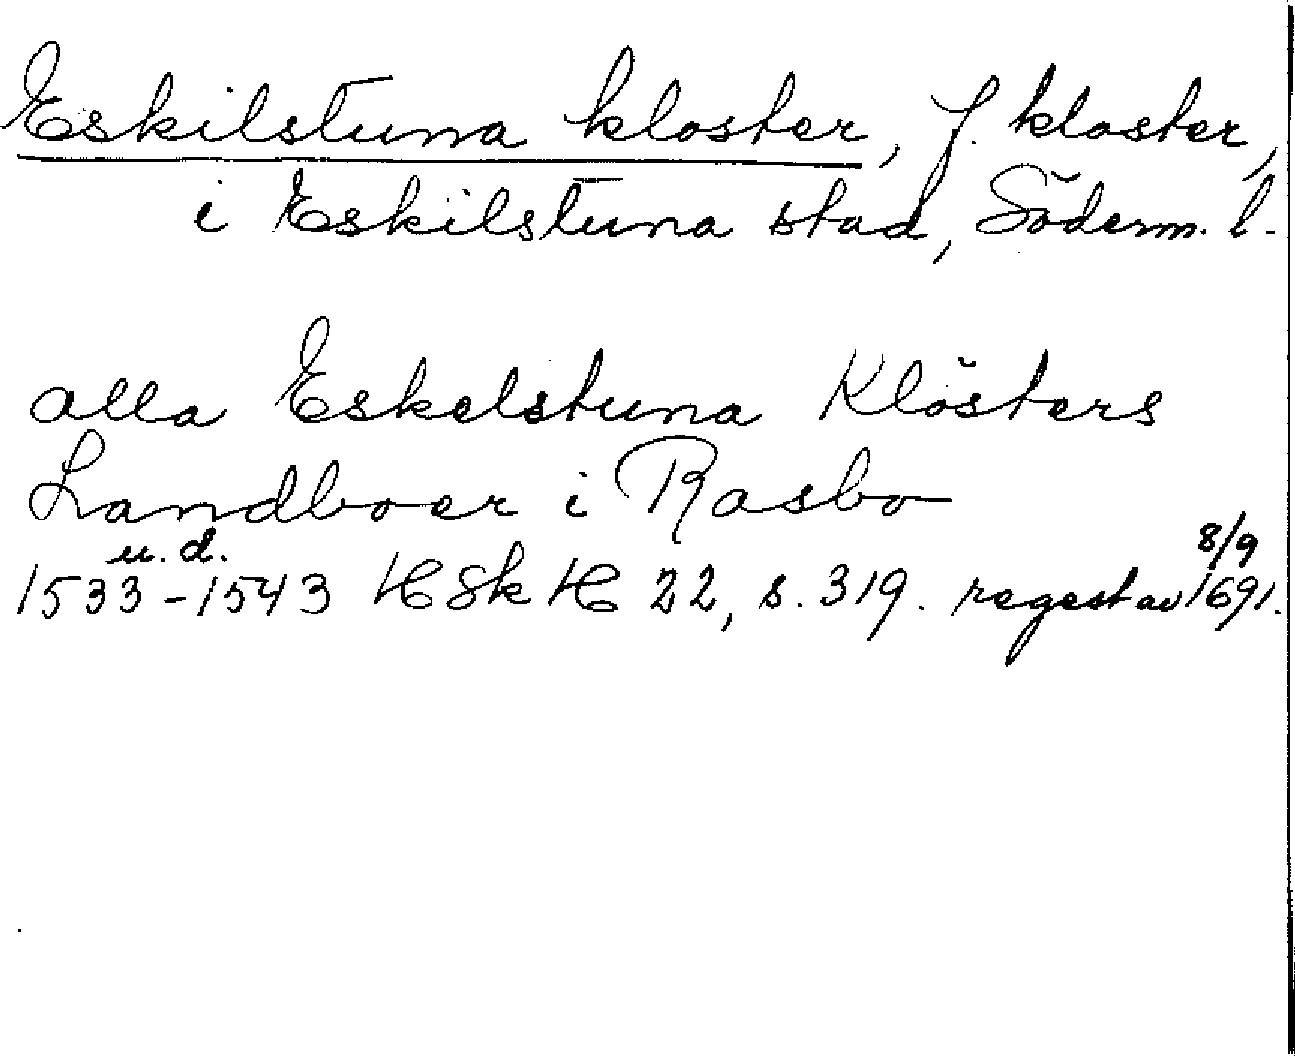 Eskilstuna kloster, f. kloster,
i Eskilstuna stad, Söderm. l.
alla Eskelstuna Klösters
Landboer i Rasbo
u. d.
1533-1543 HSkH 22, s. 319. regest av 8/9 1691.